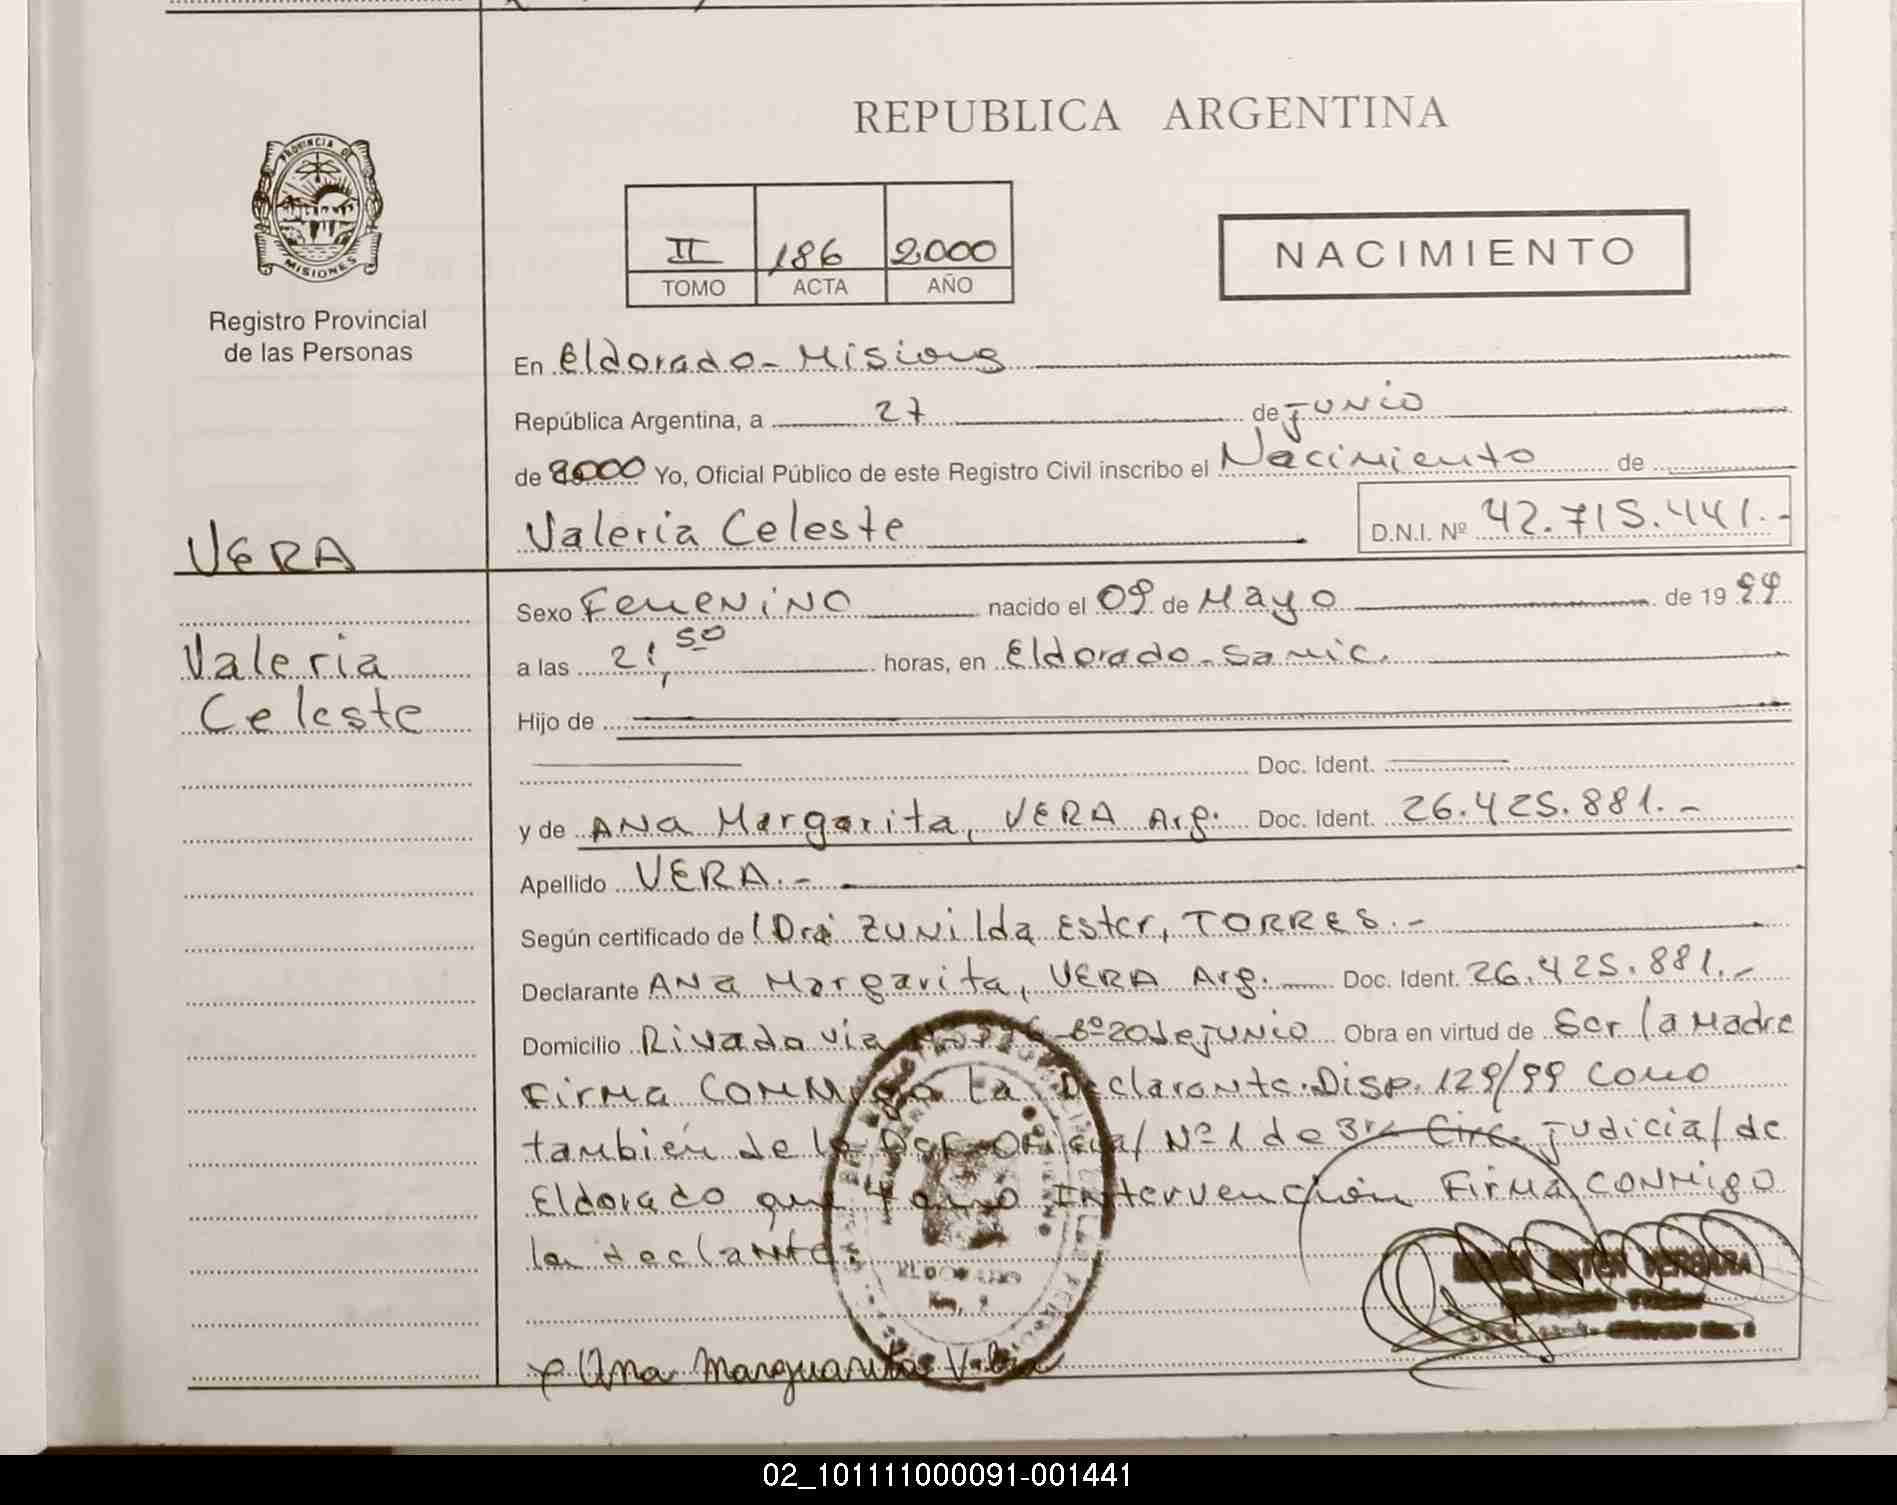 REPUBLICA ARGENTINA
PROVINCIA DE
MISIONES
Registro Provincial
de las Personas
II 186 2000
TOMO ACTA AÑO
NACIMIENTO
En Eldorado - Misiones
República Argentina, a 27 de junio
de 2000 Yo, Oficial Público de este Registro Civil inscribo el Nacimiento de
VERA
Valeria Celeste D.N.I. Nº 42.715.441.-
Sexo Femenino nacido el 09 de Mayo de 19 99
Valeria
Celeste
a las 21,50 horas, en Eldorado - Samic.
Hijo de
Doc. Ident.
y de ANA Margarita, VERA Arg. Doc. Ident. 26.425.881.-
Apellido VERA.-
Según certificado de Dra Zunilda Ester, TORRES.-
Declarante ANA Margarita, VERA Arg. Doc. Ident. 26.425.881.-
Domicilio Rivadavia Bº 20 de junio Obra en virtud de Ser la Madre
Firma CONMigo La Declarante. Disp. 129/99 como
también de la Oficial Nº 1 de 3ra Circ. judicial de
Eldorado que tomo Intervención Firma CONMigo
la declante.
ELDORADO
Km. 9
x Ana Marguarita Vera
VERGARA
02_101111000091-001441